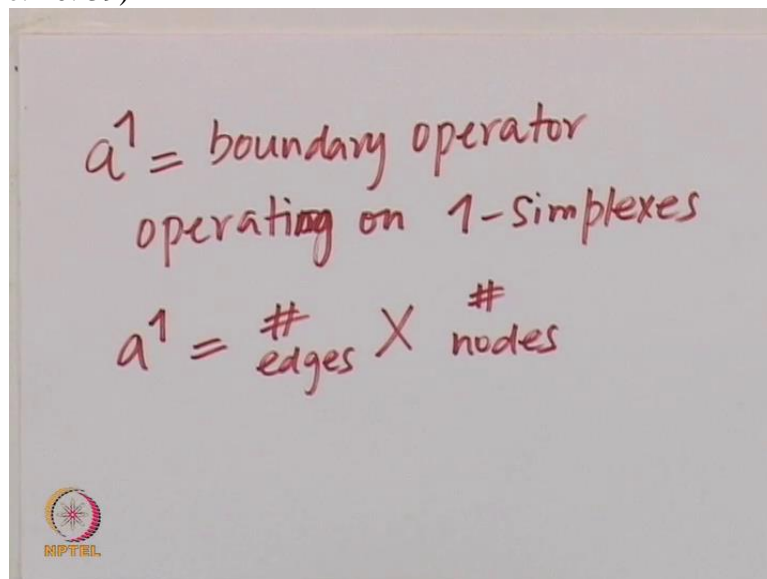 a¹ = boundary operator
operating on 1-simplexes
a¹ = # edges X # nodes
NPTEL